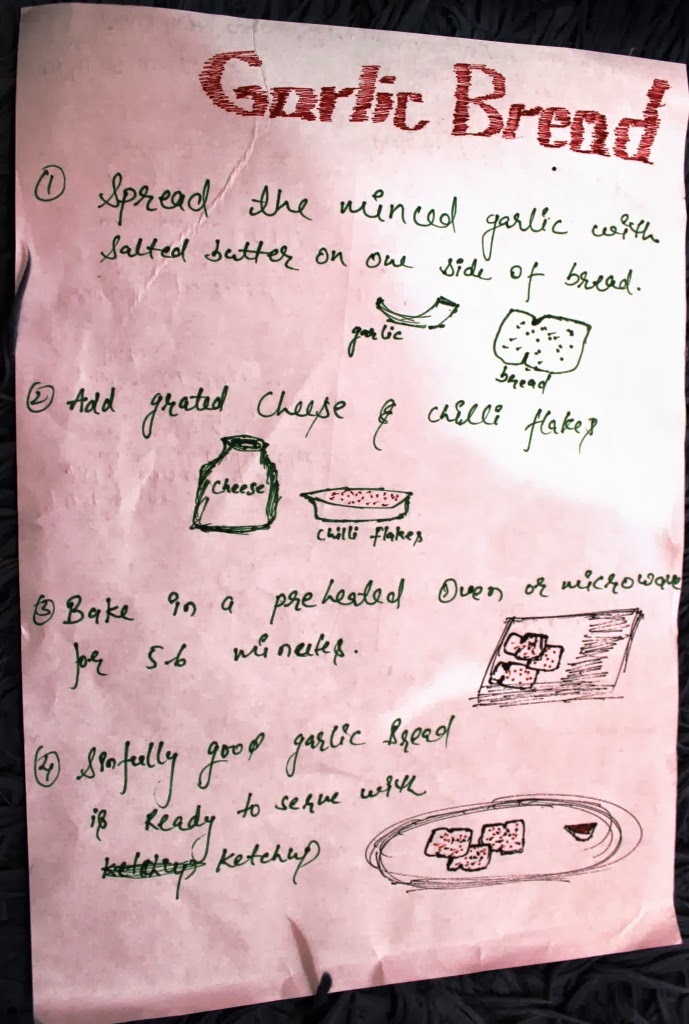 Garlic Bread
① Spread the minced garlic with
salted butter on one side of bread.
garlic
bread
② Add grated Cheese & chilli flakes
Cheese
Chilli flakes
③ Bake in a preheated Oven or microwave
for 5-6 minutes.
④ Sinfully good garlic Bread
is Ready to serve with
ketchup ketchup